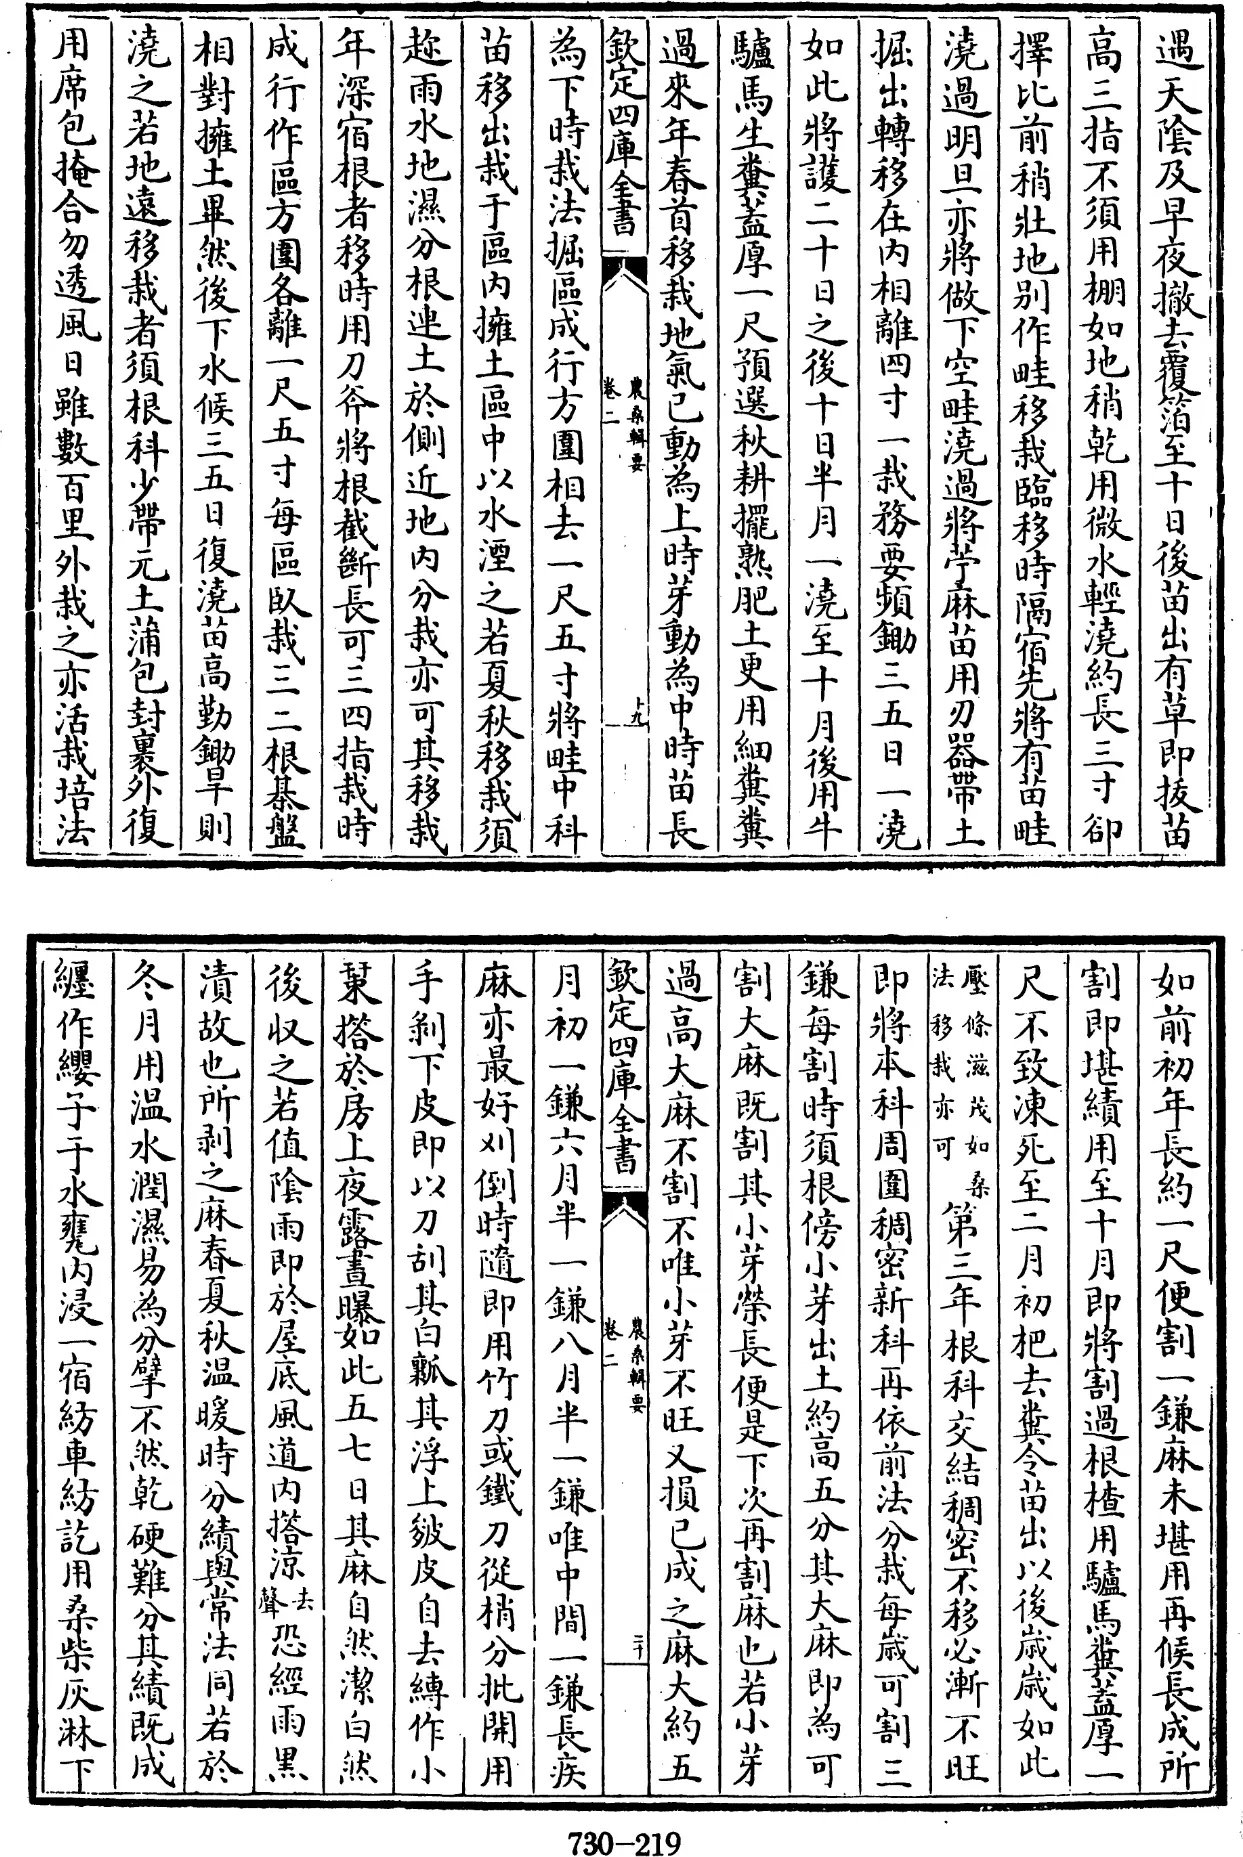 遇天隂及早夜撤去覆箔至十日後苗出有草即拔苗
高三指不須用棚如地稍乾用微水輕澆約長三寸卻
擇比前稍壯地别作畦移栽臨移時隔宿先將有苗畦
澆過明旦亦將做下空畦澆過將苧麻苗用刃器帶土
掘出轉移在内相離四寸一栽務要頻鋤三五日一澆
如此將護二十日之後十日半月一澆至十月後用牛
驢馬生糞葢厚一尺預選秋耕擺熟肥土更用細糞糞
過來年春首移栽地氣已動為上時芽動為中時苗長
欽定四庫全書
農桑輯要
卷二
十九
為下時栽法掘區成行方圍相去一尺五寸將畦中科
苗移出栽于區内擁土區中以水湮之若夏秋移栽須
趂雨水地濕分根連土於側近地内分栽亦可其移栽
年深宿根者移時用刀斧將根截斷長可三四指栽時
成行作區方圍各離一尺五寸每區臥栽三二根棊盤
相對擁土畢然後下水候三五日復澆苗高勤鋤旱則
澆之若地遠移栽者須根科少帶元土蒲包封裹外復
用席包掩合勿透風日雖數百里外栽之亦活栽培法
如前初年長約一尺便割一鎌麻未堪用再候長成所
割即堪績用至十月即將割過根楂用驢馬糞葢厚一
尺不致凍死至二月初杷去糞令苗出以後歳歳如此
壓條滋茂如桑
法移栽亦可
第三年根科交結稠密不移必漸不旺
即將本科周圍稠密新科再依前法分栽每歳可割三
鎌每割時須根傍小芽出土約高五分其大麻即為可
割大麻既割其小芽榮長便是下次再割麻也若小芽
過高大麻不割不唯小芽不旺又損已成之麻大約五
欽定四庫全書
農桑輯要
卷二
二十
月初一鎌六月半一鎌八月半一鎌唯中間一鎌長疾
麻亦最好刈倒時隨即用竹刀或鐵刀從梢分批開用
手剥下皮即以刀刮其白瓤其浮上皴皮自去縛作小
𦶜搭於房上夜露晝曝如此五七日其麻自然潔白然
後収之若值隂雨即於屋底風道内搭涼
去
聲
恐經雨黒
漬故也所剥之麻春夏秋温暖時分績與常法同若於
冬月用温水潤濕易為分擘不然乾硬難分其績既成
纏作纓子于水甕内浸一宿紡車紡訖用桑柴灰淋下
730-219